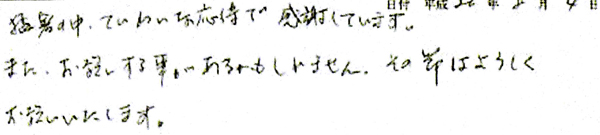 日付 平成 2 年 月 4 日
猛暑の中、ていねいな応待で感謝しています。
また、お願いする事があるかもしれません。その節はよろしく
お願いいたします。